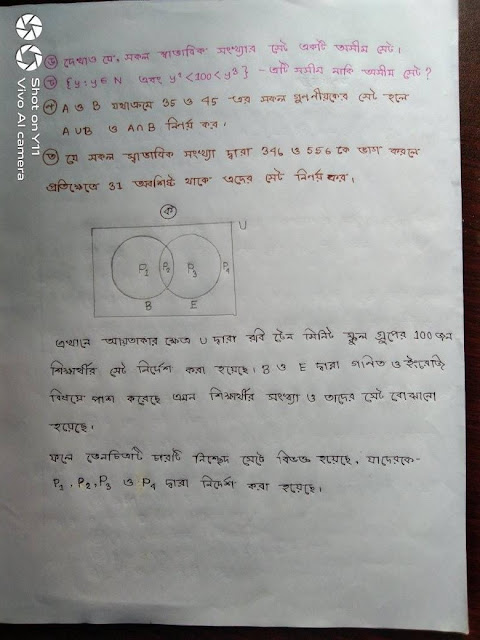 Shot on Y11
Vivo AI camera
দেখাও যে, সকল স্বাভাবিক সংখ্যার সেট একটি অসীম সেট।
{y:y∈N এবং y²<100<y³} - এটি সসীম নাকি অসীম সেট?
A ও B যথাক্রমে 35 ও 45 এর সকল গুণনীয়কের সেট হলে
A∪B ও A∩B নির্ণয় কর।
যে সকল স্বাভাবিক সংখ্যা দ্বারা 346 ও 556 কে ভাগ করলে
প্রতিক্ষেত্রে 31 অবশিষ্ট থাকে এদের সেট নির্ণয় কর।
ক
U
P₁ P₂ P₃ P₄
B E
এখানে আয়তাকার ক্ষেত্র U দ্বারা রবি টেন মিনিট স্কুল গ্রুপের 100 জন
শিক্ষার্থীর সেট নির্দেশ করা হয়েছে। B ও E দ্বারা গণিত ও ইংরেজি
বিষয়ে পাশ করেছে এমন শিক্ষার্থীর সংখ্যা ও তাদের সেট বোঝানো
হয়েছে।
ফলে ভেনচিত্রটি চারটি নিশ্ছেদ সেটে বিভক্ত হয়েছে, যাদেরকে
P₁, P₂, P₃ ও P₄ দ্বারা নির্দেশ করা হয়েছে।